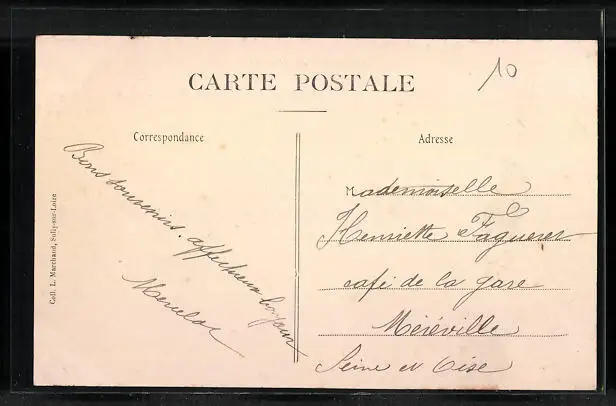 CARTE POSTALE
10
Correspondance
Bons souvenirs. affectueux bonjour
Adresse
Mademoiselle
Henriette Fagueret
café de la gare
Méréville
Seine et Oise
Coll. L. Marchand, Sully-sur-Loire